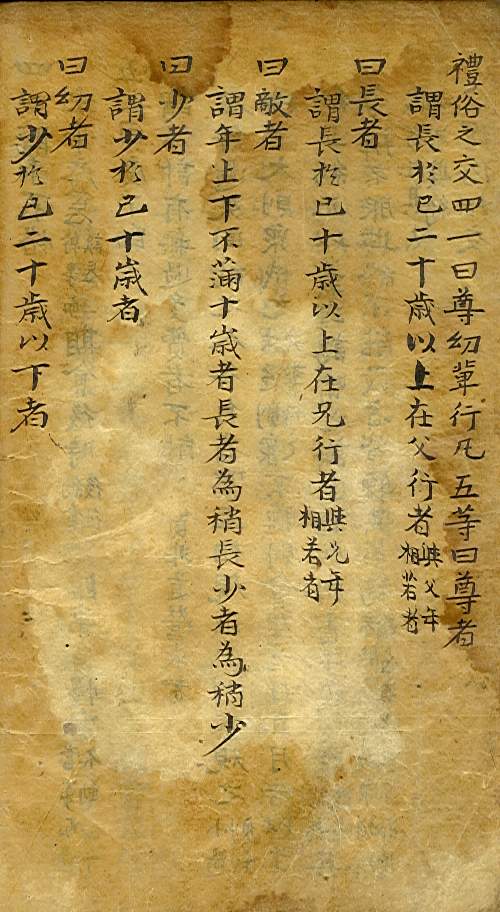 禮俗之交四一曰尊幼輩行凡五等曰尊者
謂長於己二十歲以上在父行者與父年相若者
曰長者
謂長於己十歲以上在兄行者與兄年相若者
曰敵者
謂年上下不蒲十歲者長者為稍長少者為稍少
曰少者
謂少於己十歲者
曰幼者
謂少於己二十歲以下者